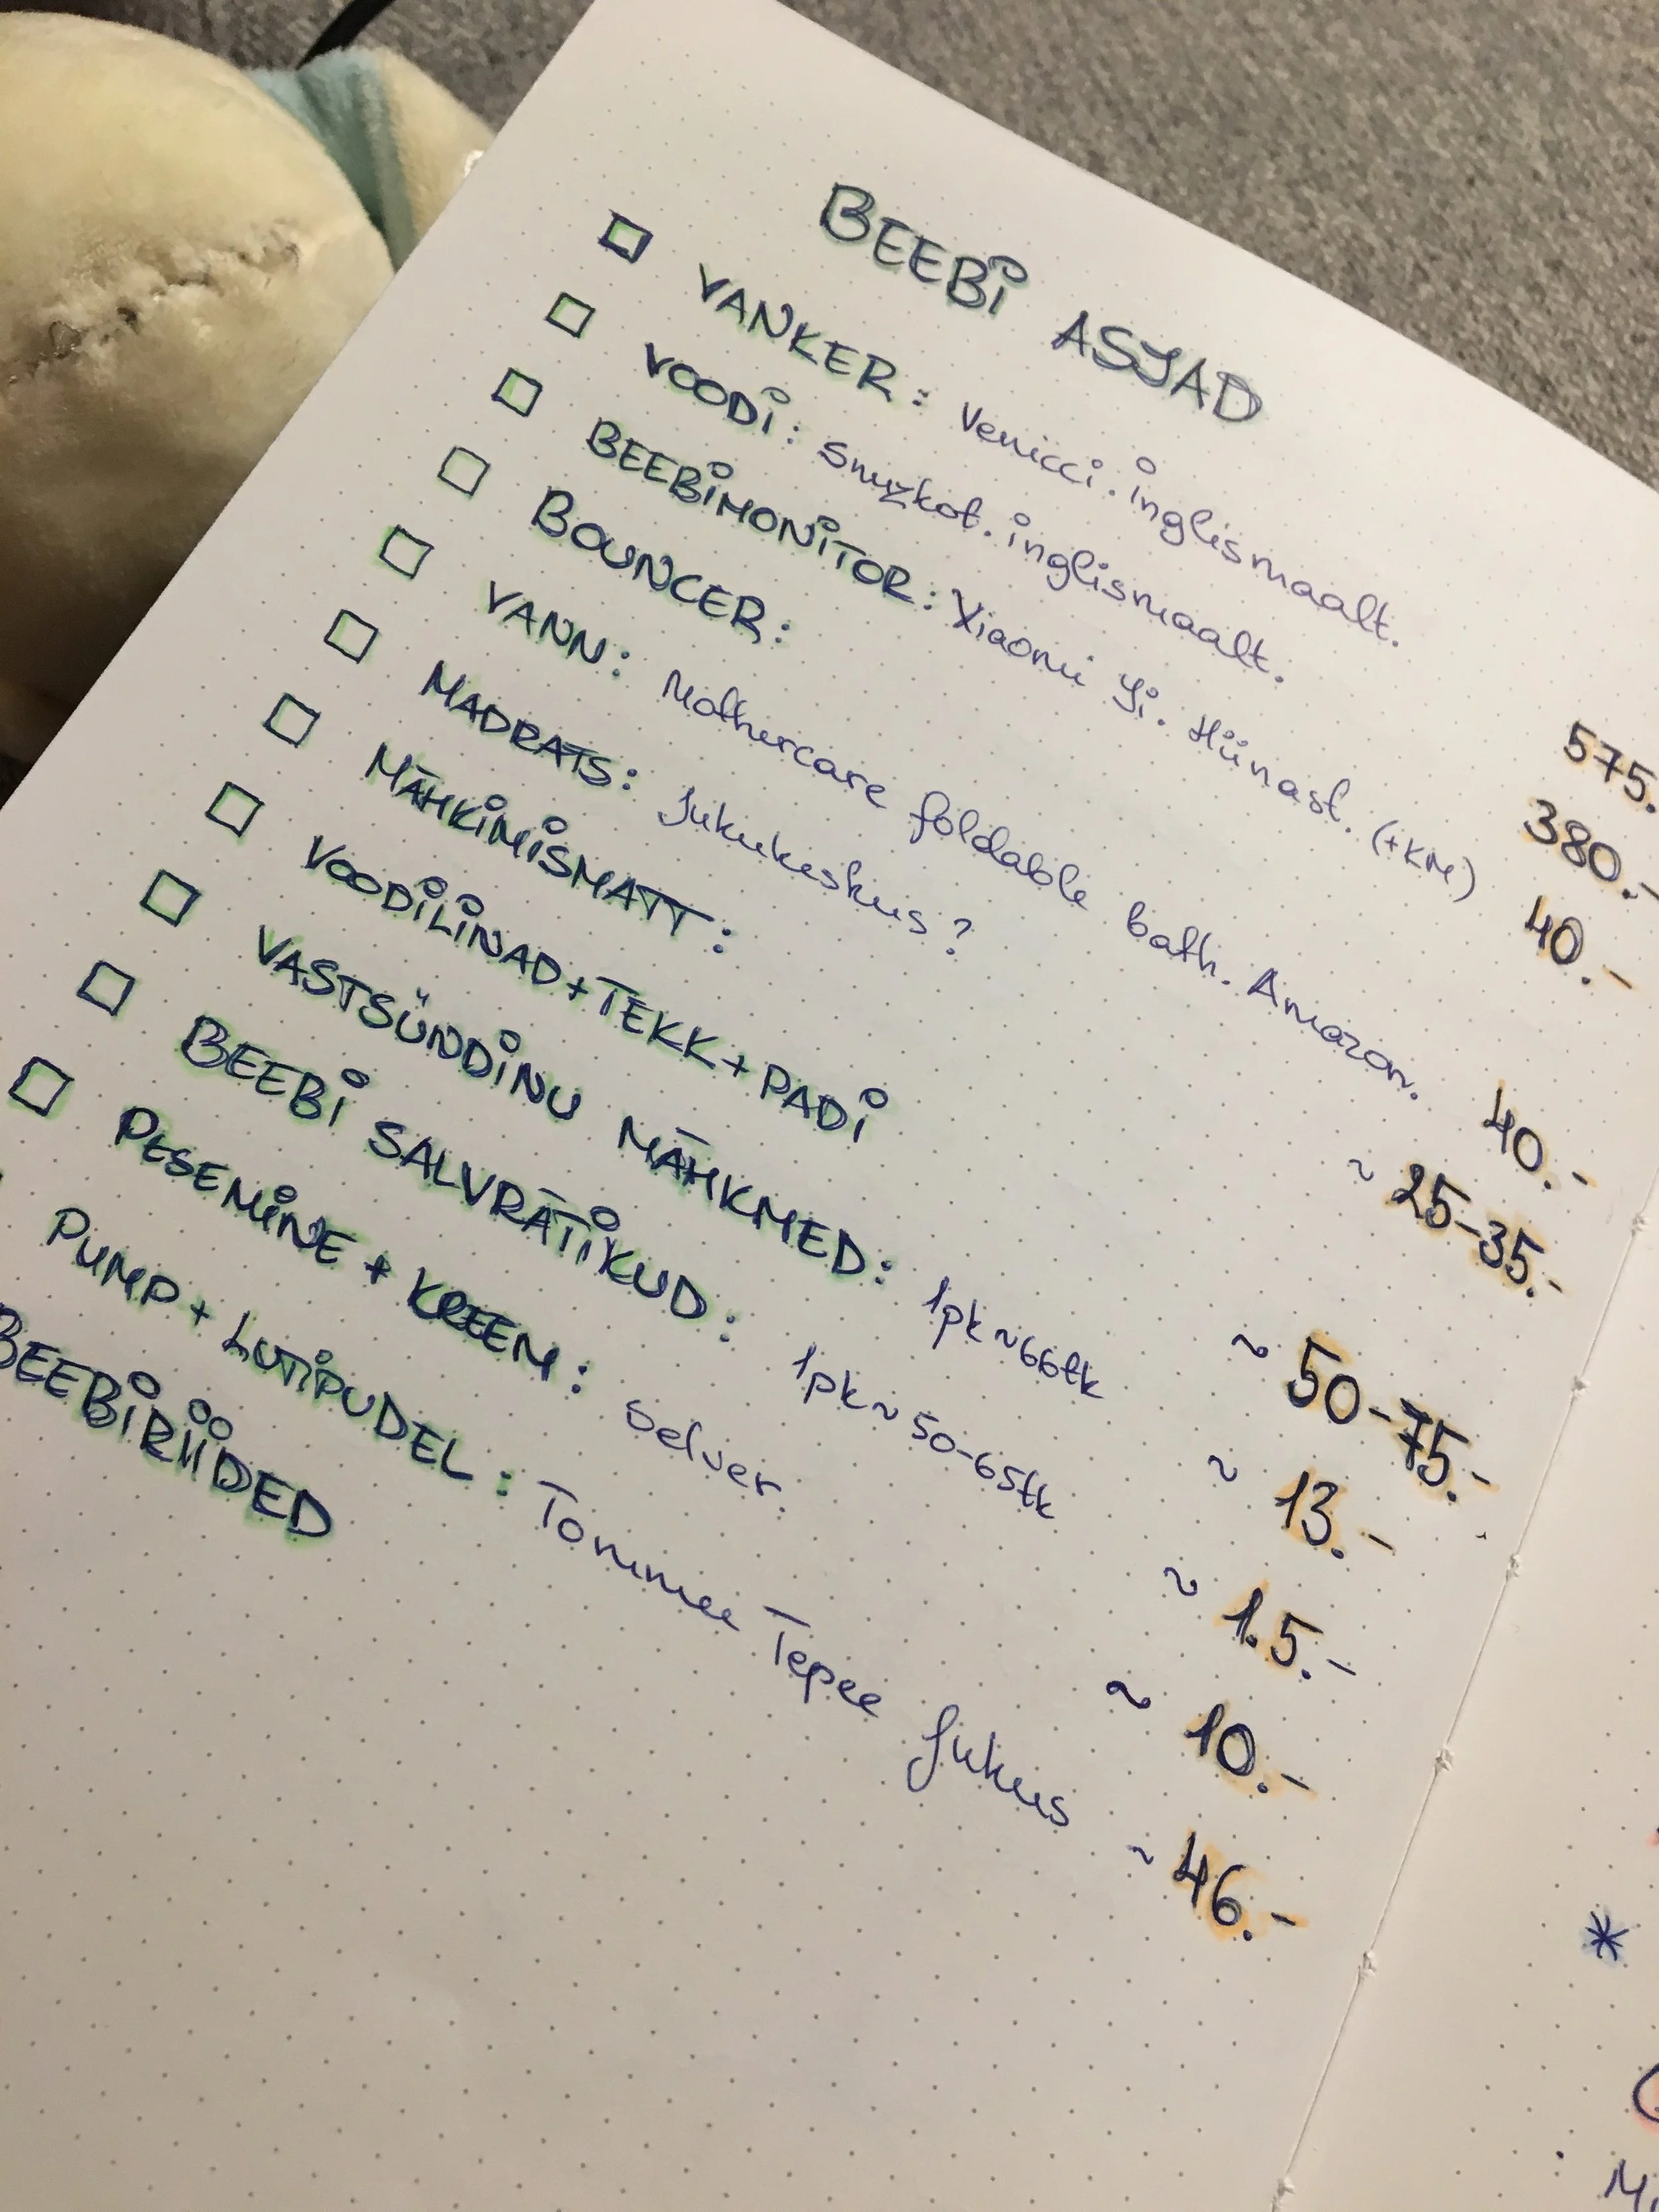 BEEBI ASJAD
VANKER: Venicci. inglismaalt. 575.
VOODI: Snuzkot. inglismaalt. 380.-
BEEBIMONITOR: Xiaomi Yi. Hiinast. (+KM) 40.-
BOUNCER:
VANN: Mothercare foldable bath. Amazon. 40.-
MADRATS: Jukukeskus? ~ 25-35.-
MÄHKIMISMATT:
VOODILINAD+TEKK+PADI ~ 50-75.-
VASTSÜNDINU MÄHKMED: 1pk~66tk ~ 13.-
BEEBI SALVRÄTIKUD: 1pk~50-65tk ~ 1.5.-
PESEMINE + KREEM: Selver. ~ 10.-
PUMP + LUTIPUDEL: Tommee Tepee Jukus ~ 46.-
BEEBIRIIDED
*